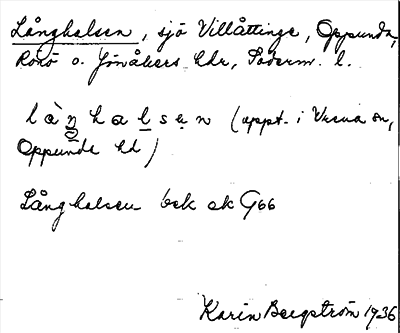 Långhalsen, sjö Villåttinge, Oppunda,
Rönö o. Jönåkers hdr, Söderm. l.
làŋhalsen (uppt. i Vrena sn,
Oppunda hd)
Långhalsen bek ak G66
Karin Bergström 1936